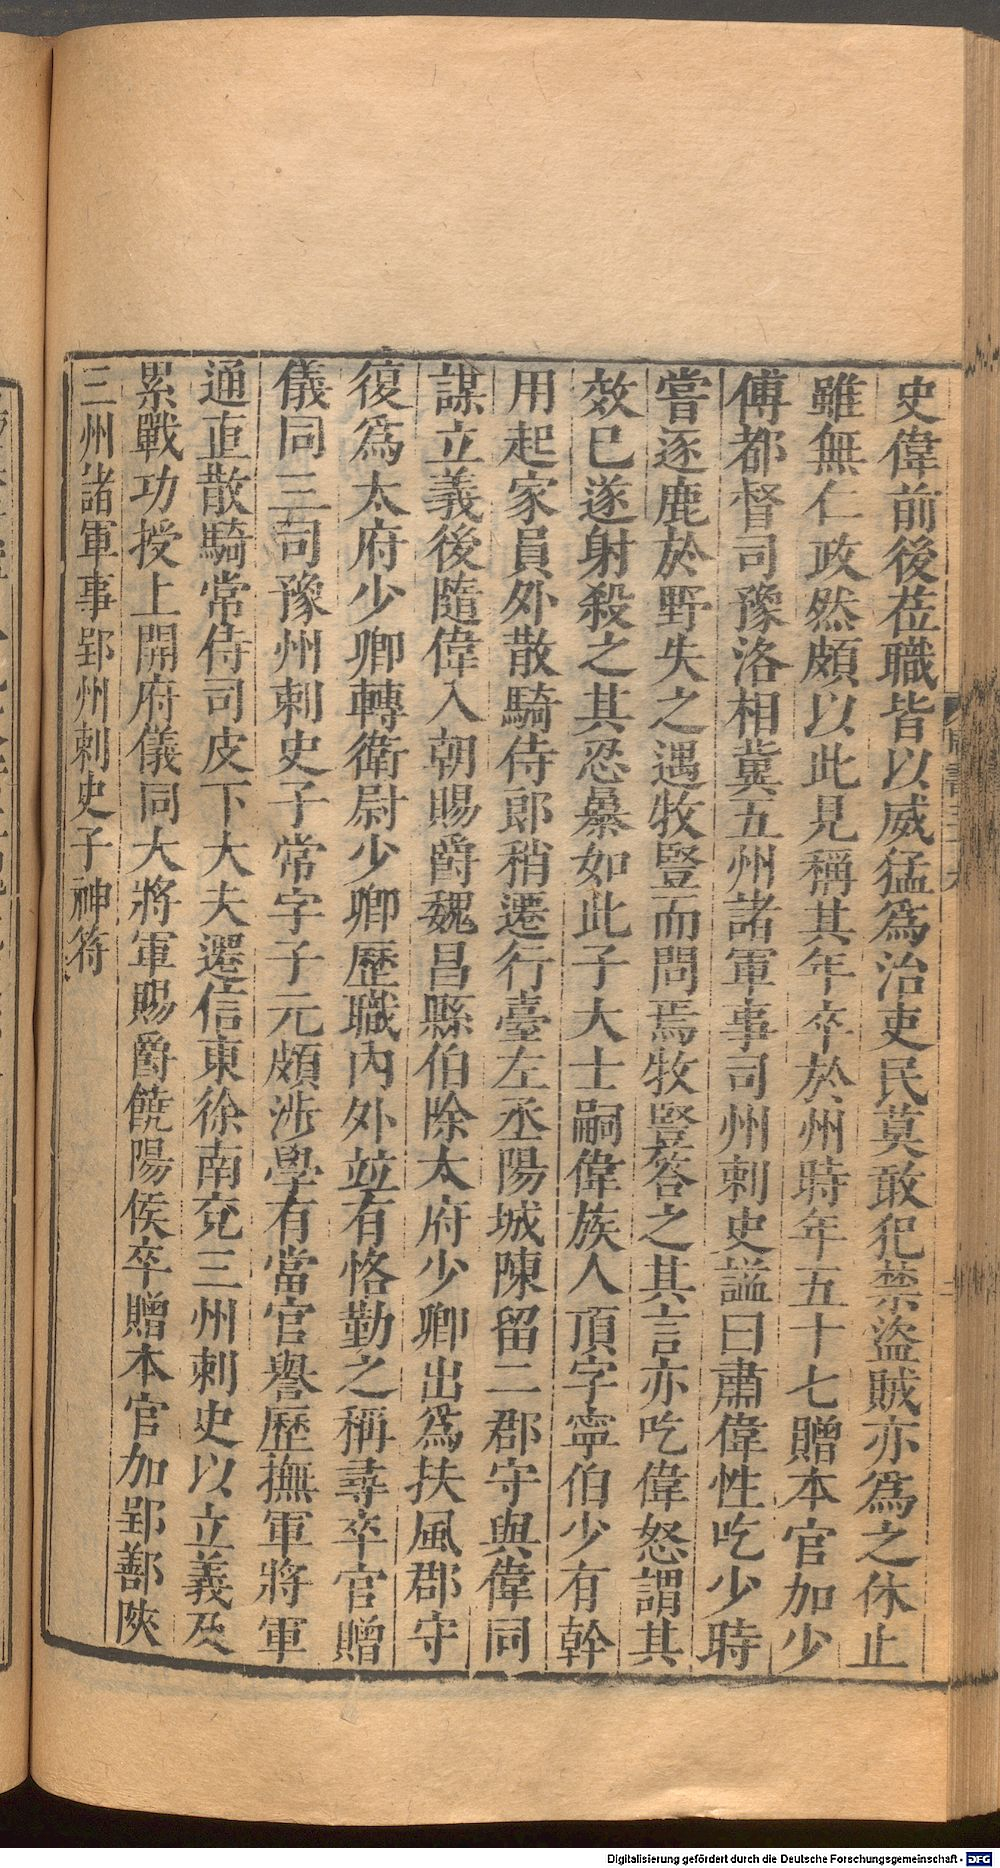 史偉前後莅職皆以威猛爲治吏民莫敢犯禁盜賊亦爲之休止
雖無仁政然頗以此見稱其年卒於州時年五十七贈本官加少
傅都督司豫洛相冀五州諸軍事司州刺史謚曰肅偉性吃少時
嘗逐鹿於野失之遇牧豎而問焉牧豎答之其言亦吃偉怒謂其
效已遂射殺之其忍暴如此子大士嗣偉族人頂字寧伯少有幹
用起家員外散騎侍郎稍遷行臺左丞陽城陳留二郡守與偉同
謀立義後隨偉入朝賜爵魏昌縣伯除太府少卿出爲扶風郡守
復爲太府少卿轉衛尉少卿歷職內外竝有恪勤之稱尋卒官贈
儀同三司豫州刺史子常字子元頗涉學有當官譽歷撫軍將軍
通直散騎常侍司皮下大夫遷信東徐南兗三州刺史以立義及
累戰功授上開府儀同大將軍賜爵饒陽侯卒贈本官加郢鄯陝
三州諸軍事郢州刺史子神符
Digitalisierung gefördert durch die Deutsche Forschungsgemeinschaft - DFG